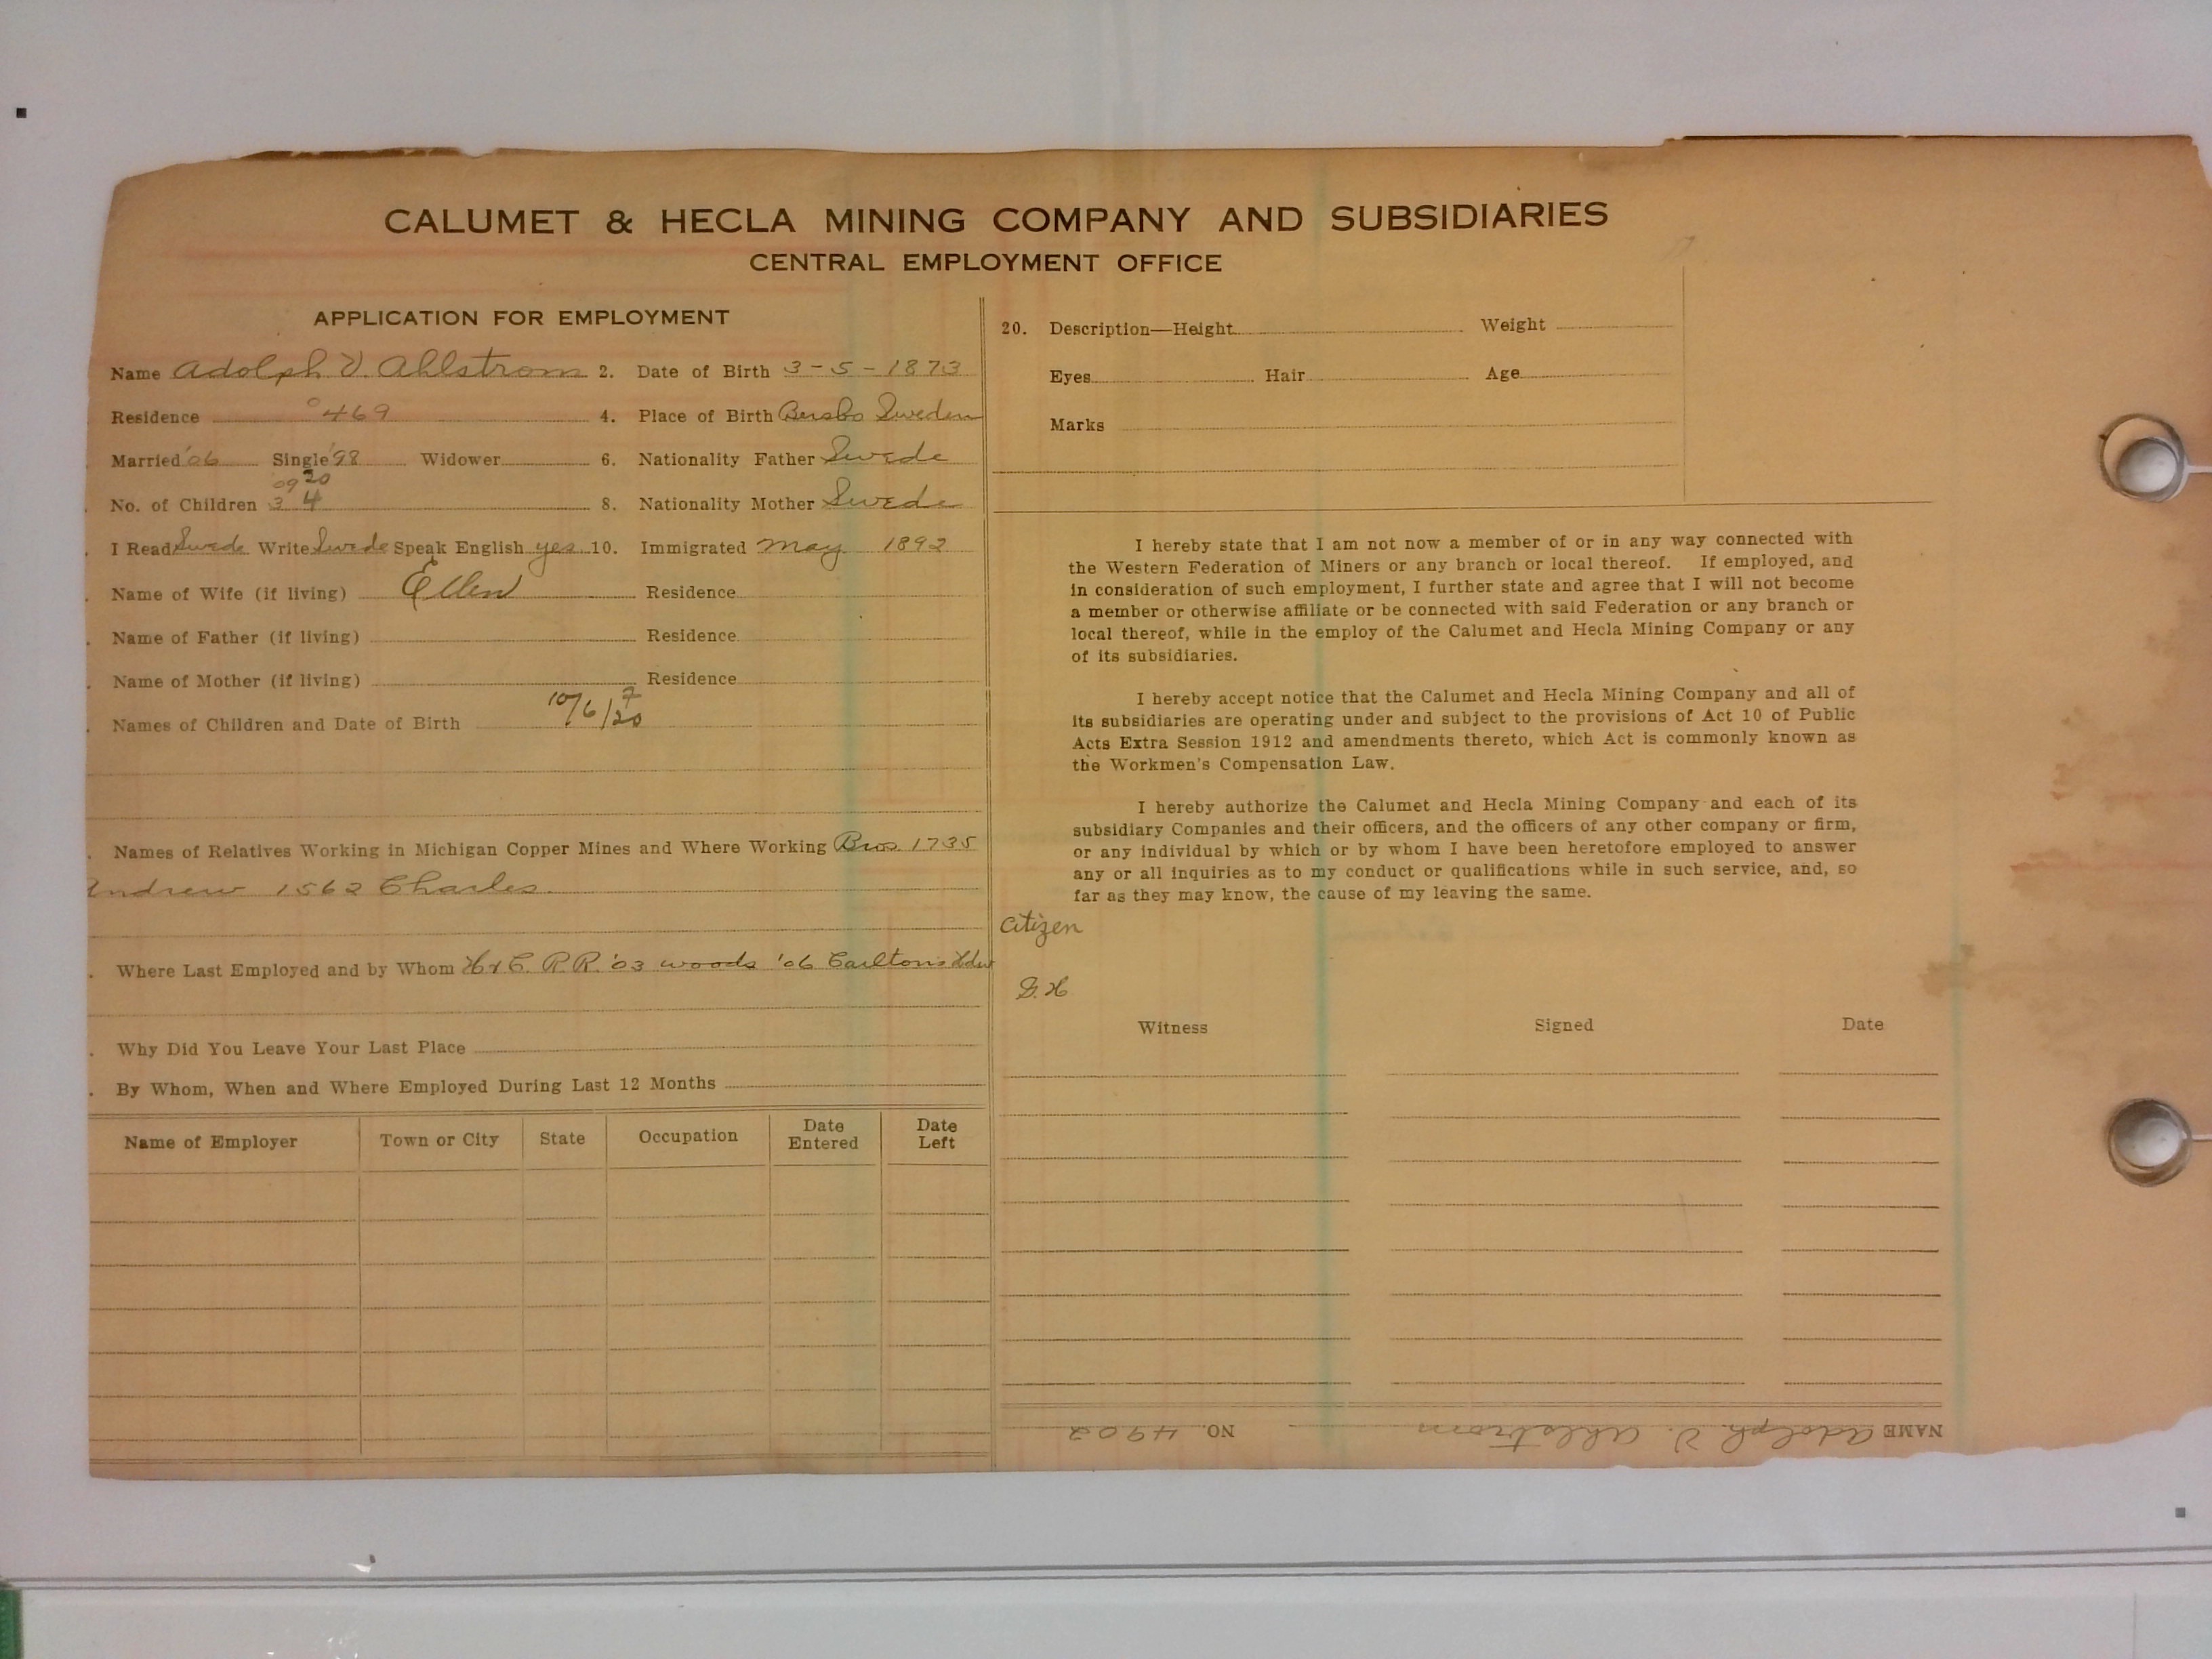 CALUMET & HECLA MINING COMPANY AND SUBSIDIARIES
CENTRAL EMPLOYMENT OFFICE
APPLICATION FOR EMPLOYMENT
Name Adolph V. Ahlstrom 2. Date of Birth 3-5-1873
Residence 469 4. Place of Birth Bersbo Sweden
Married '06 Single '98 Widower 6. Nationality Father Swede
09 20
No. of Children 3 4 8. Nationality Mother Swede
I Read Swede Write Swede Speak English yes 10. Immigrated May 1892
Name of Wife (if living) Ellen Residence
Name of Father (if living) Residence
Name of Mother (if living) Residence
Names of Children and Date of Birth 10/6/20
Names of Relatives Working in Michigan Copper Mines and Where Working Bros. 1735
Andrew 1562 Charles.
Where Last Employed and by Whom H & C. R.R. '03 woods '06 Carltons Hdw
Why Did You Leave Your Last Place
By Whom, When and Where Employed During Last 12 Months
Name of Employer Town or City State Occupation Date Entered Date Left
20. Description—Height Weight
Eyes Hair Age
Marks
I hereby state that I am not now a member of or in any way connected with
the Western Federation of Miners or any branch or local thereof. If employed, and
in consideration of such employment, I further state and agree that I will not become
a member or otherwise affiliate or be connected with said Federation or any branch or
local thereof, while in the employ of the Calumet and Hecla Mining Company or any
of its subsidiaries.
I hereby accept notice that the Calumet and Hecla Mining Company and all of
its subsidiaries are operating under and subject to the provisions of Act 10 of Public
Acts Extra Session 1912 and amendments thereto, which Act is commonly known as
the Workmen's Compensation Law.
I hereby authorize the Calumet and Hecla Mining Company and each of its
subsidiary Companies and their officers, and the officers of any other company or firm,
or any individual by which or by whom I have been heretofore employed to answer
any or all inquiries as to my conduct or qualifications while in such service, and, so
far as they may know, the cause of my leaving the same.
Citizen
G. H
Witness Signed Date
NAME Adolph V. Ahlstrom NO. 4902